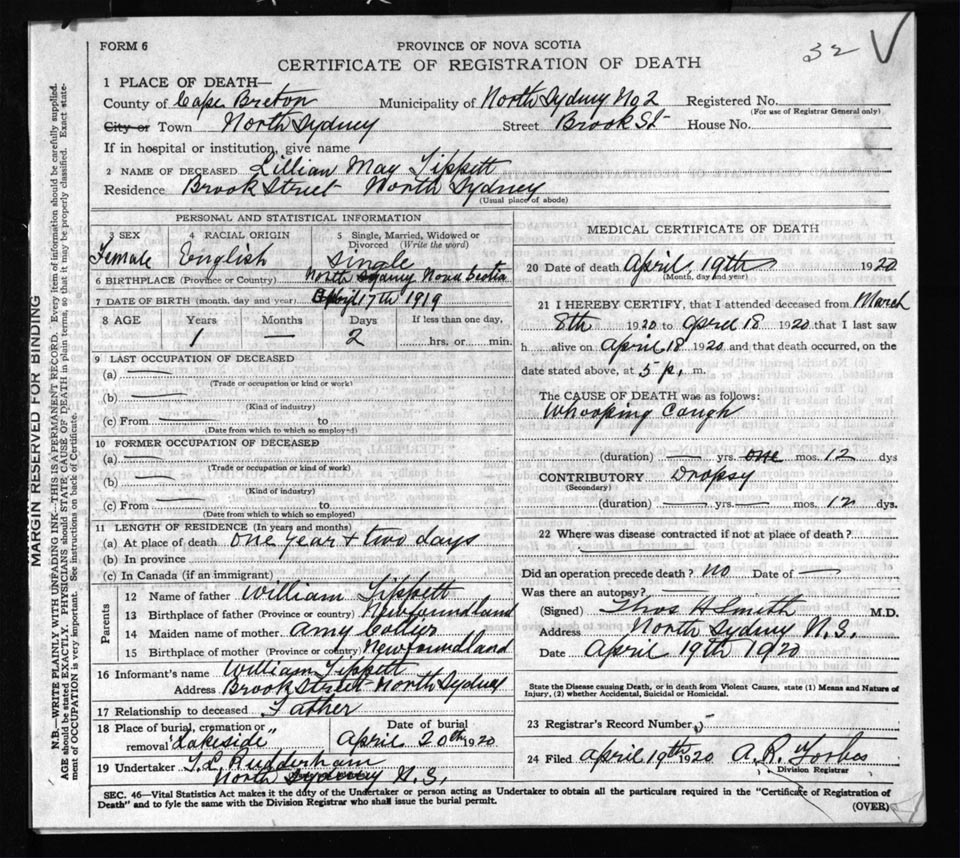 32 V
FORM 6
PROVINCE OF NOVA SCOTIA
CERTIFICATE OF REGISTRATION OF DEATH
1 PLACE OF DEATH—
County of Cape Breton Municipality of North Sydney No 2 Registered No.
(For use of Registrar General only)
City or Town North Sydney Street Brook St House No.
If in hospital or institution, give name
2 NAME OF DECEASED Lillian May Tippett
Residence Brook Street North Sydney
(Usual place of abode)
PERSONAL AND STATISTICAL INFORMATION
3 SEX 4 RACIAL ORIGIN 5 Single, Married, Widowed or Divorced (Write the word)
Female English Single
6 BIRTHPLACE (Province or Country) North Sydney Nova Scotia
7 DATE OF BIRTH (month, day and year) 17th 1919
8 AGE Years Months Days If less than one day,
1 — 2 hrs. or min.
9 LAST OCCUPATION OF DECEASED
(a) —
(Trade or occupation or kind or work)
(b) —
(Kind of industry)
(c) From — to
(Date from which to which so employed)
10 FORMER OCCUPATION OF DECEASED
(a) —
(Trade or occupation or kind of work)
(b) —
(Kind of industry)
(c) From — to
(Date from which to which so employed)
11 LENGTH OF RESIDENCE (In years and months)
(a) At place of death one year + two days
(b) In province
(c) In Canada (if an immigrant)
Parents
12 Name of father William Tippett
13 Birthplace of father (Province or country) Newfoundland
14 Maiden name of mother Amy Collier
15 Birthplace of mother (Province or country) Newfoundland
16 Informant's name William Tippett
Address Brook Street North Sydney
17 Relationship to deceased Father
18 Place of burial, cremation or removal "Lakeside" Date of burial April 20th 1920
19 Undertaker Rudderham
North Sydney N.S.
MEDICAL CERTIFICATE OF DEATH
20 Date of death April 19th 1920
(Month, day and year)
21 I HEREBY CERTIFY, that I attended deceased from March
8th 1920 to April 18 1920 that I last saw
h alive on April 18 1920 and that death occurred, on the
date stated above, at 5 p. m.
The CAUSE OF DEATH was as follows:
Whooping Cough
(duration) — yrs. one mos. 12 dys
CONTRIBUTORY Dropsy
(Secondary)
(duration) — yrs. — mos. 12 dys.
22 Where was disease contracted if not at place of death?
Did an operation precede death? No Date of —
Was there an autopsy? —
(Signed) Thos H Smith M.D.
Address North Sydney N.S.
Date April 19th 1920
State the Disease causing Death, or in death from Violent Causes, state (1) Means and Nature of
Injury, (2) whether Accidental, Suicidal or Homicidal.
23 Registrar's Record Number
24 Filed April 19th 1920 A. R. Forbes
Division Registrar
SEC. 46—Vital Statistics Act makes it the duty of the Undertaker or person acting as Undertaker to obtain all the particulars required in the "Certificate of Registration of
Death" and to fyle the same with the Division Registrar who shall issue the burial permit.
(OVER)
MARGIN RESERVED FOR BINDING
N.B.—WRITE PLAINLY WITH UNFADING INK—THIS IS A PERMANENT RECORD. Every item of information should be carefully supplied.
AGE should be stated EXACTLY. PHYSICIANS should STATE CAUSE OF DEATH in plain terms, so that it may be properly classified. Exact state-
ment of OCCUPATION is very important. See instructions on back of Certificate.